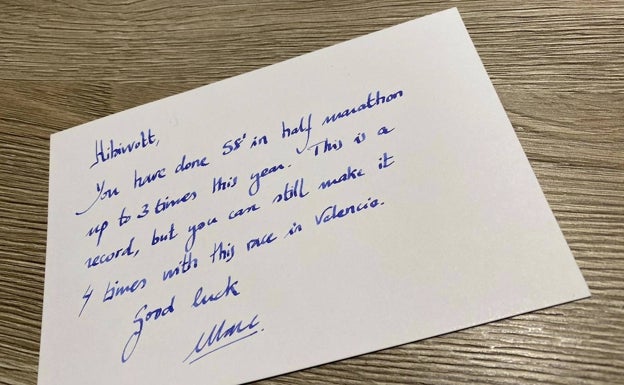 Hibiwott,
You have done 58' in half marathon
up to 3 times this year. This is a
record, but you can still make it
4 times with this race in Valencia.
Good luck
Marc.